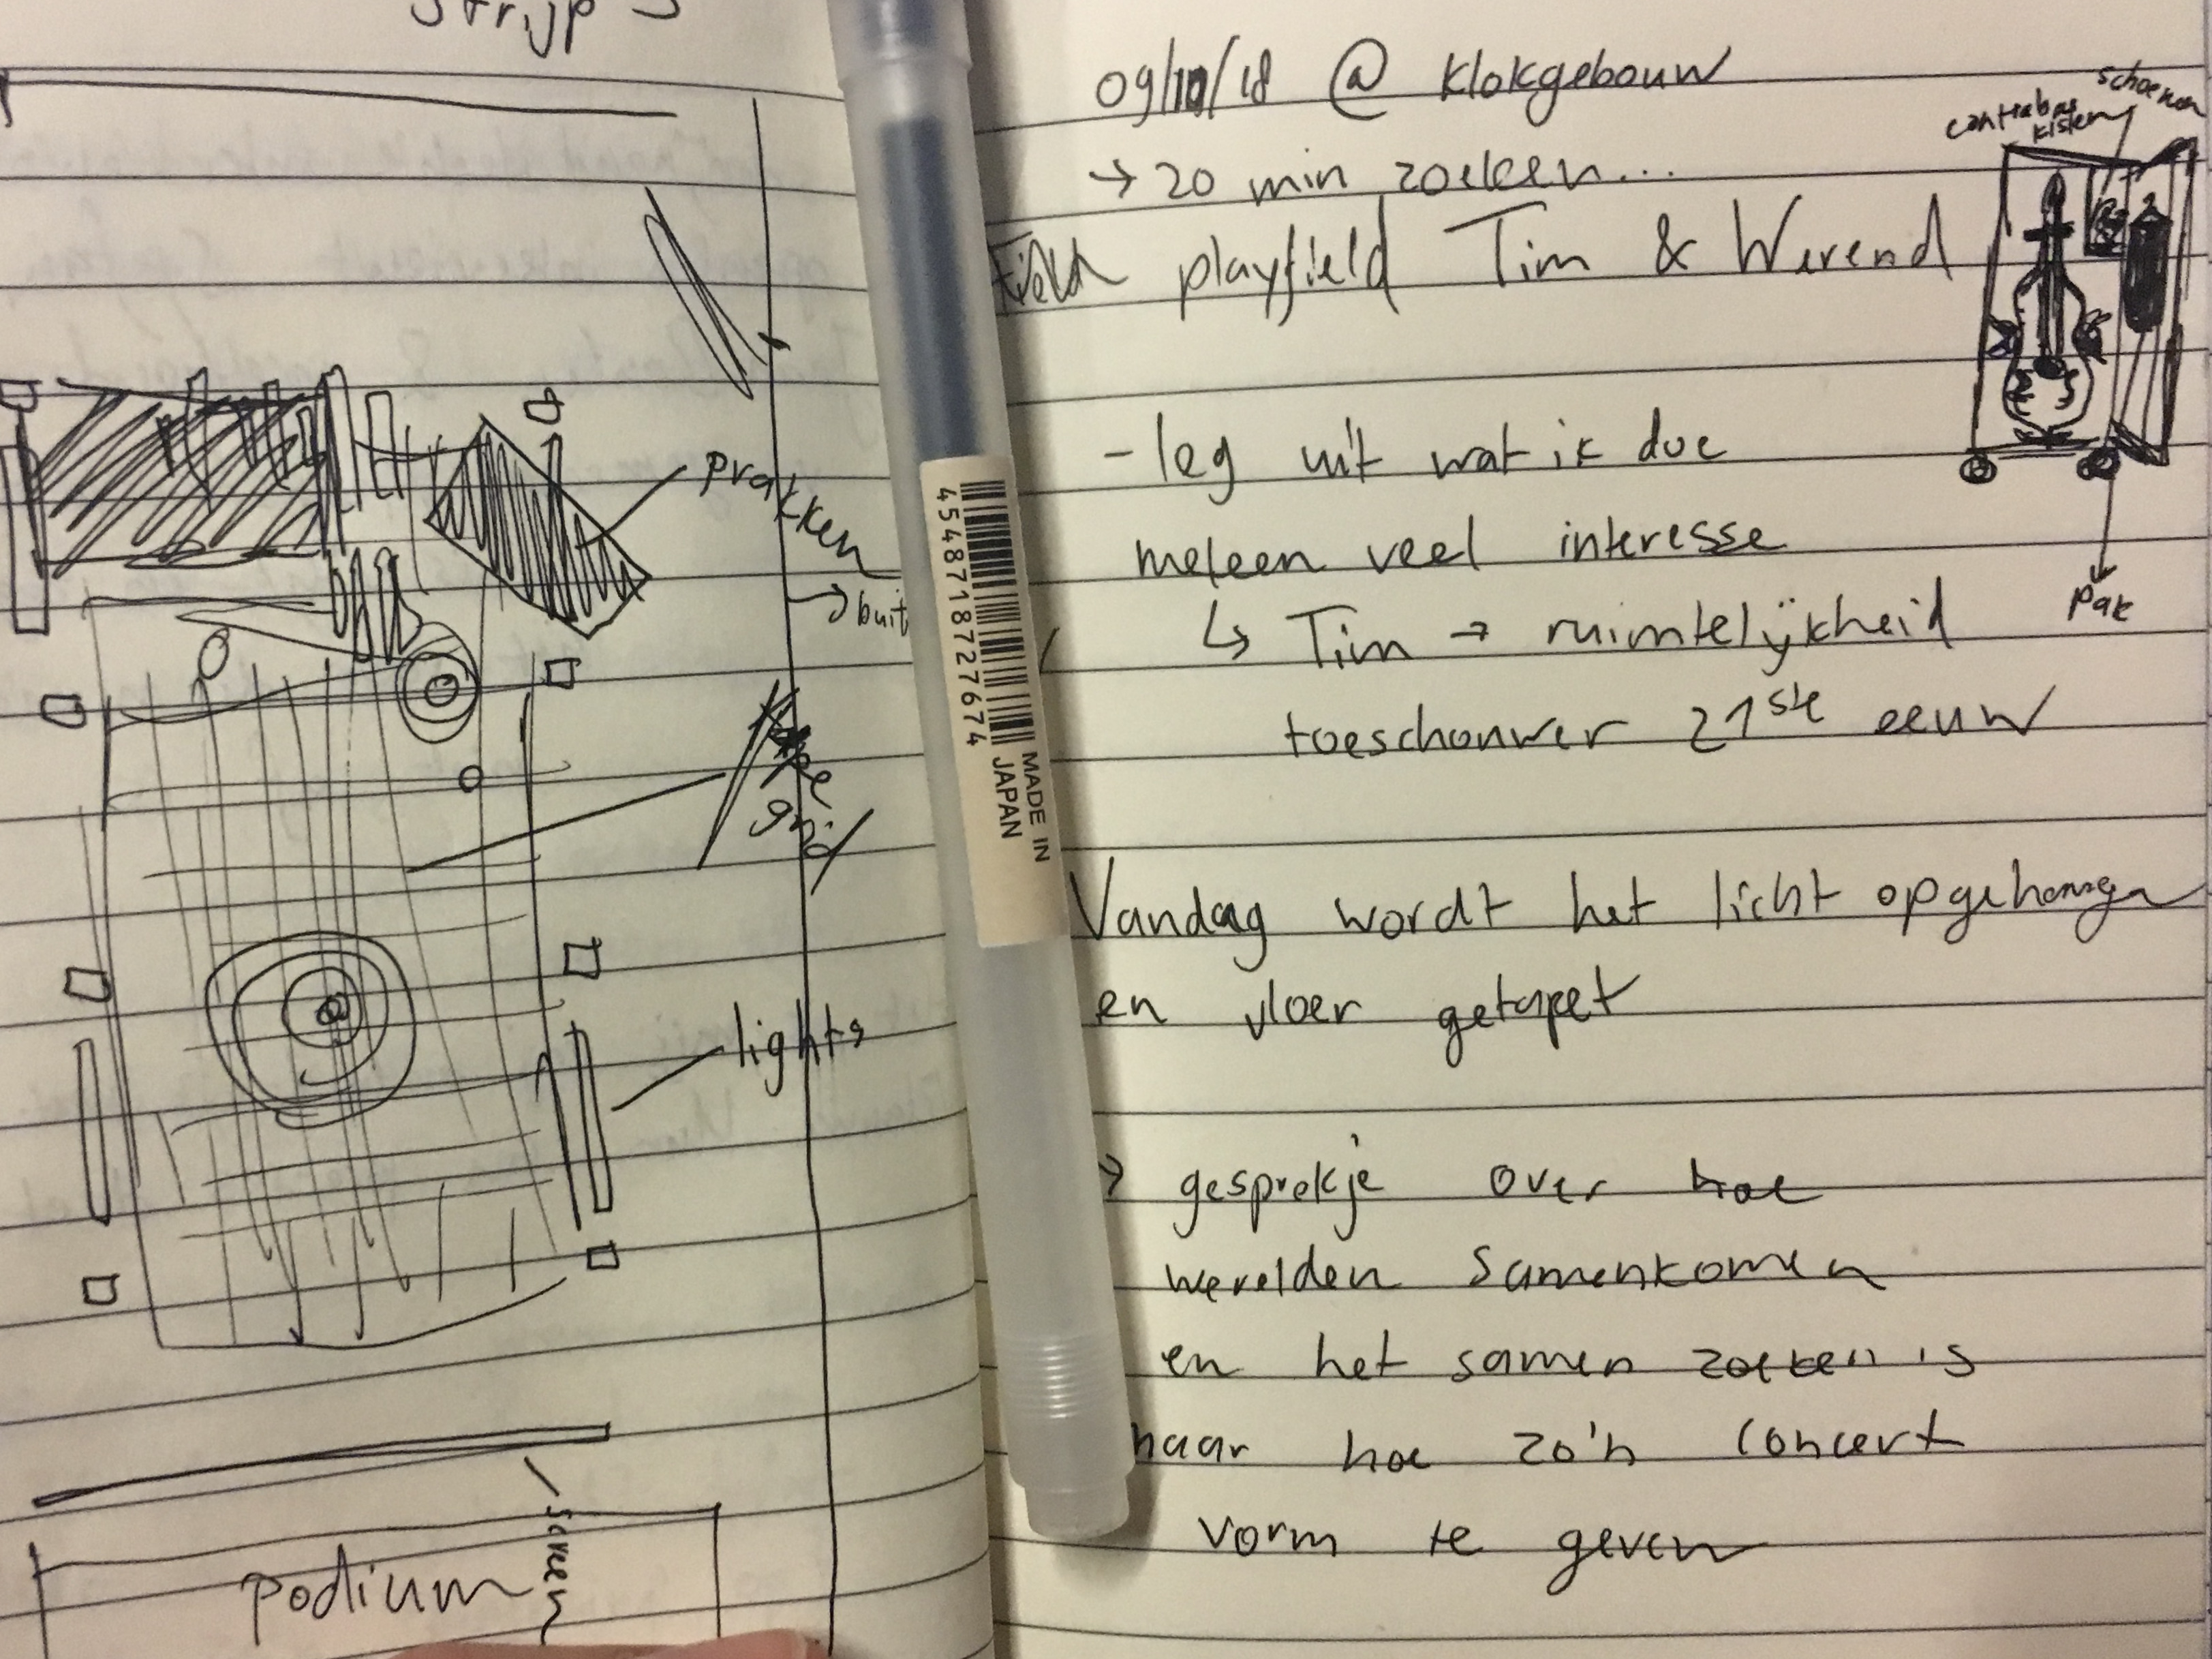 Strijp S
prakken
buit
tape
grid
lights
screen
podium
4548718727674
MADE IN
JAPAN
09/10/18 @ Klokgebouw
→ 20 min zoeken...
playfield Tim & Werend
contrabas
kisten
schoenen
pak
- leg uit wat ik doe
meteen veel interesse
↳ Tim → ruimtelijkheid
toeschouwer 21ste eeuw
Vandaag wordt het licht opgehangen
en vloer getapet
→ gesprekje over hoe
werelden samenkomen
en het samen zoeken is
naar hoe zo'n concert
vorm te geven